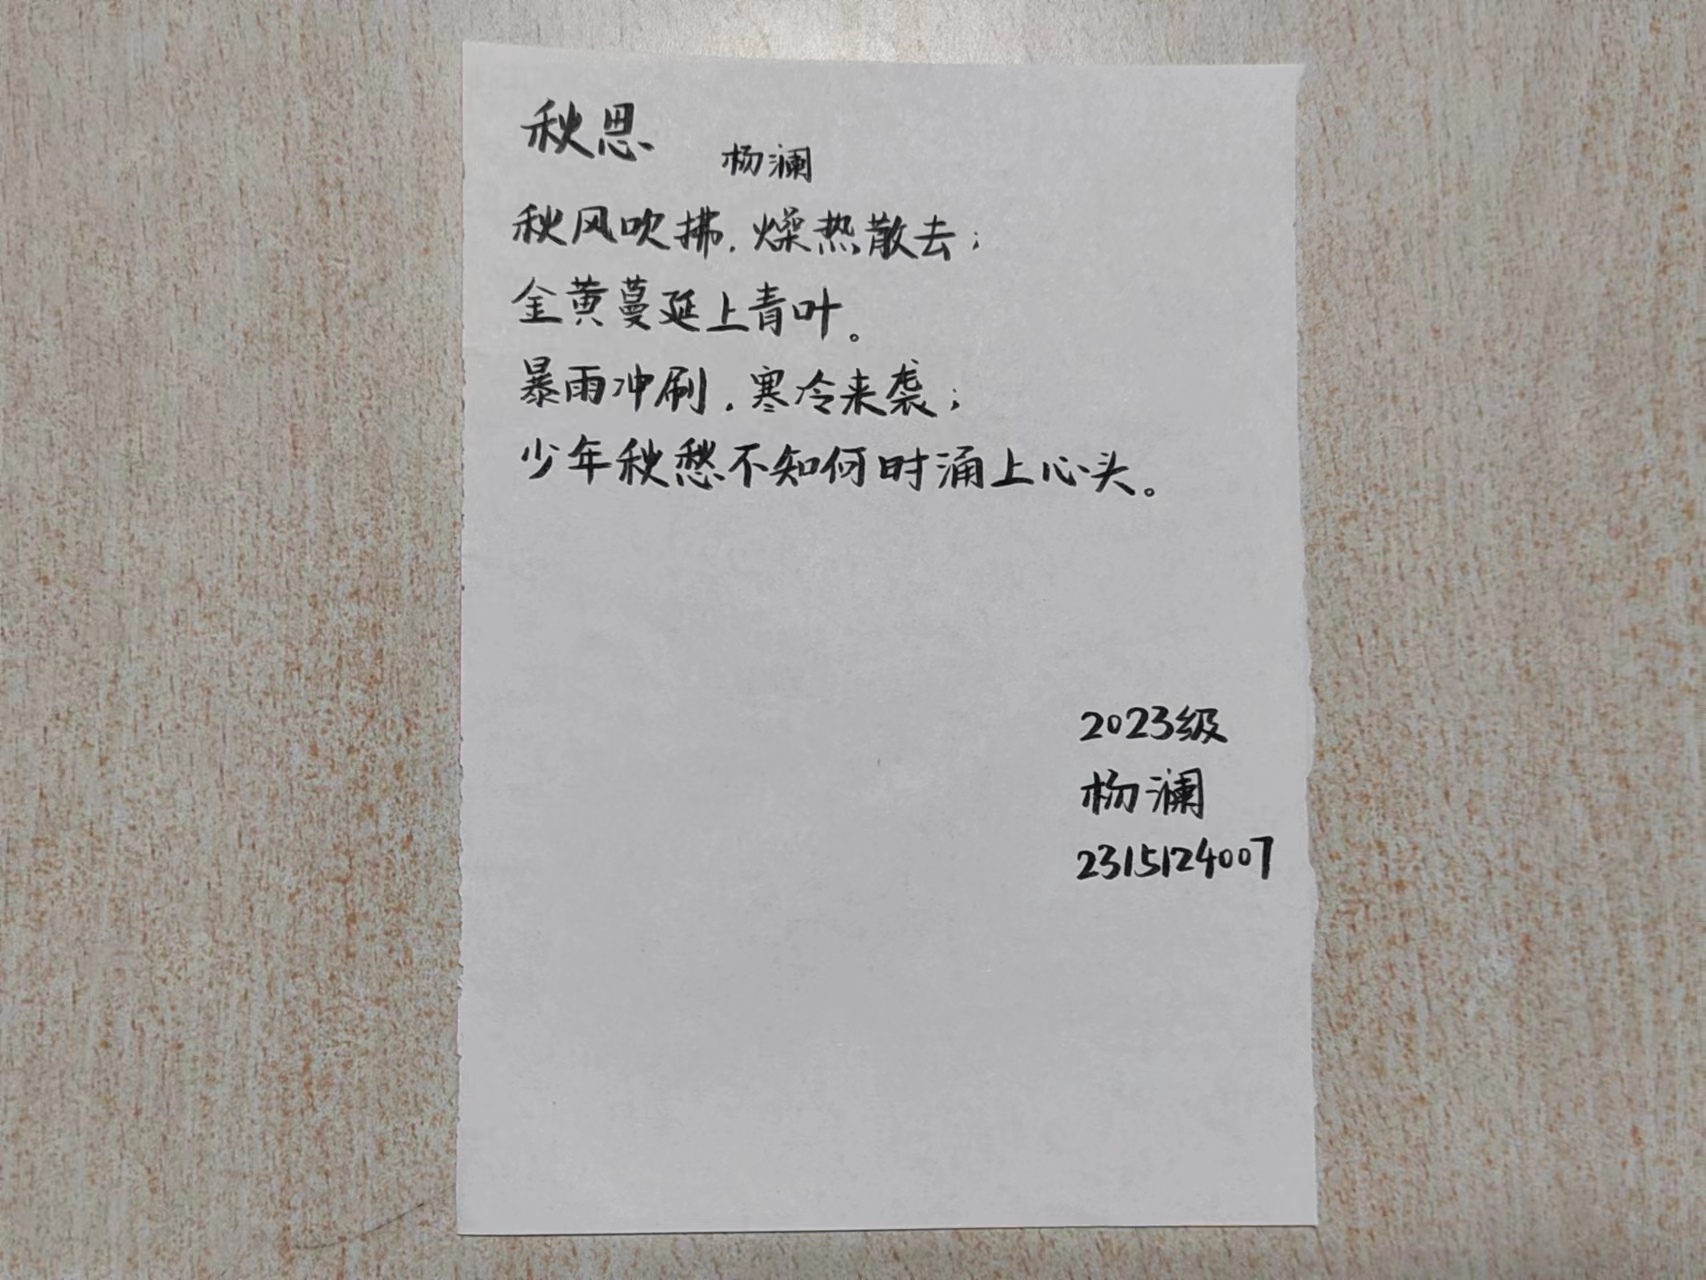 秋思 杨澜
秋风吹拂，燥热散去；
金黄蔓延上青叶。
暴雨冲刷，寒冷来袭；
少年秋愁不知何时涌上心头。
2023级
杨澜
2315124007